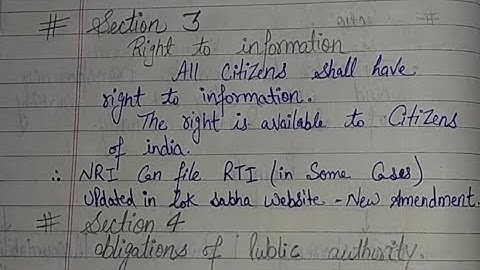 # Section 3
Right to information
All Citizens shall have
right to information.
The right is available to Citizens
of india.
∴ NRI Can file RTI (in Some Cases)
updated in lok sabha website - New Amendment.
# Section 4
obligations of Public authority.